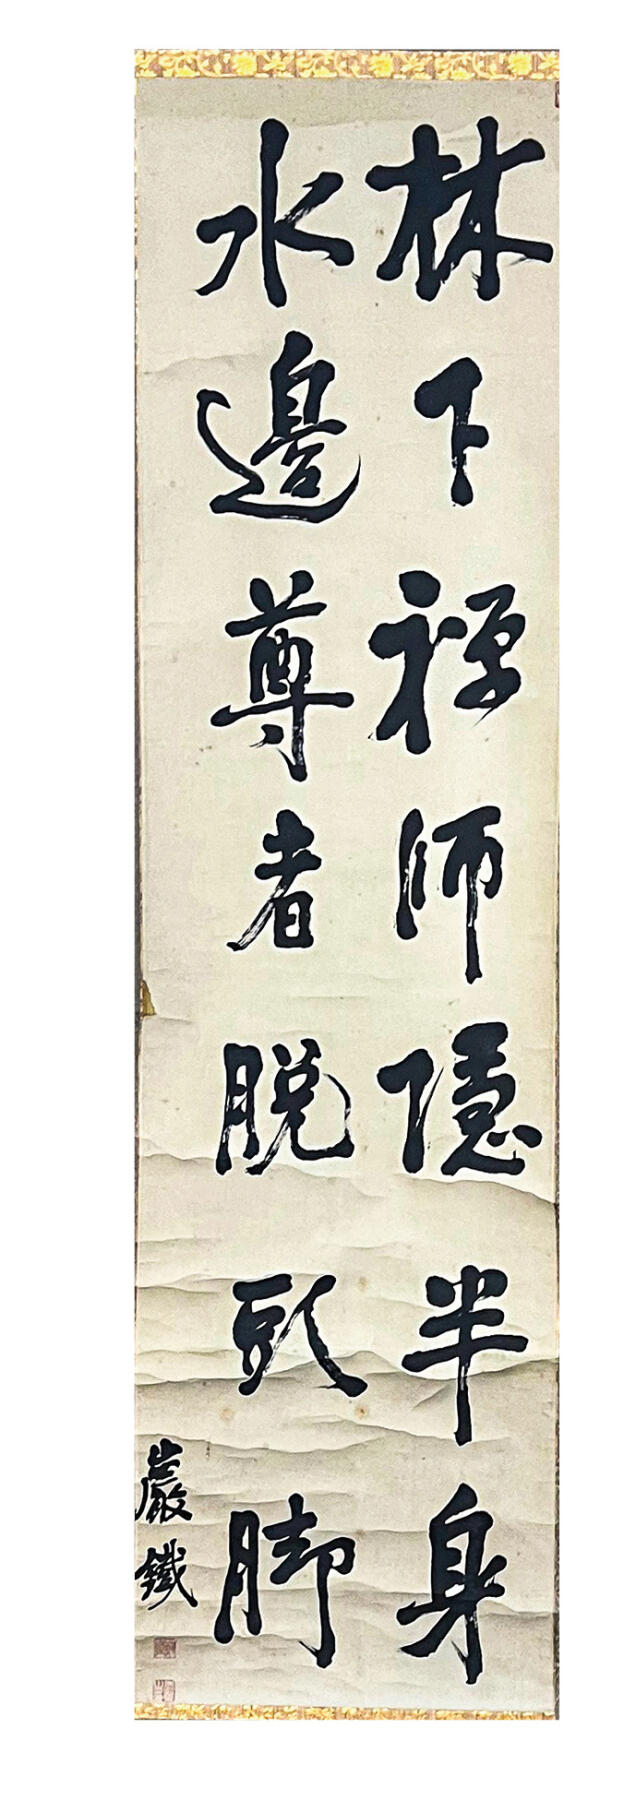 林下禅師隱半身
水邊尊者脱頭脚
巖鐵